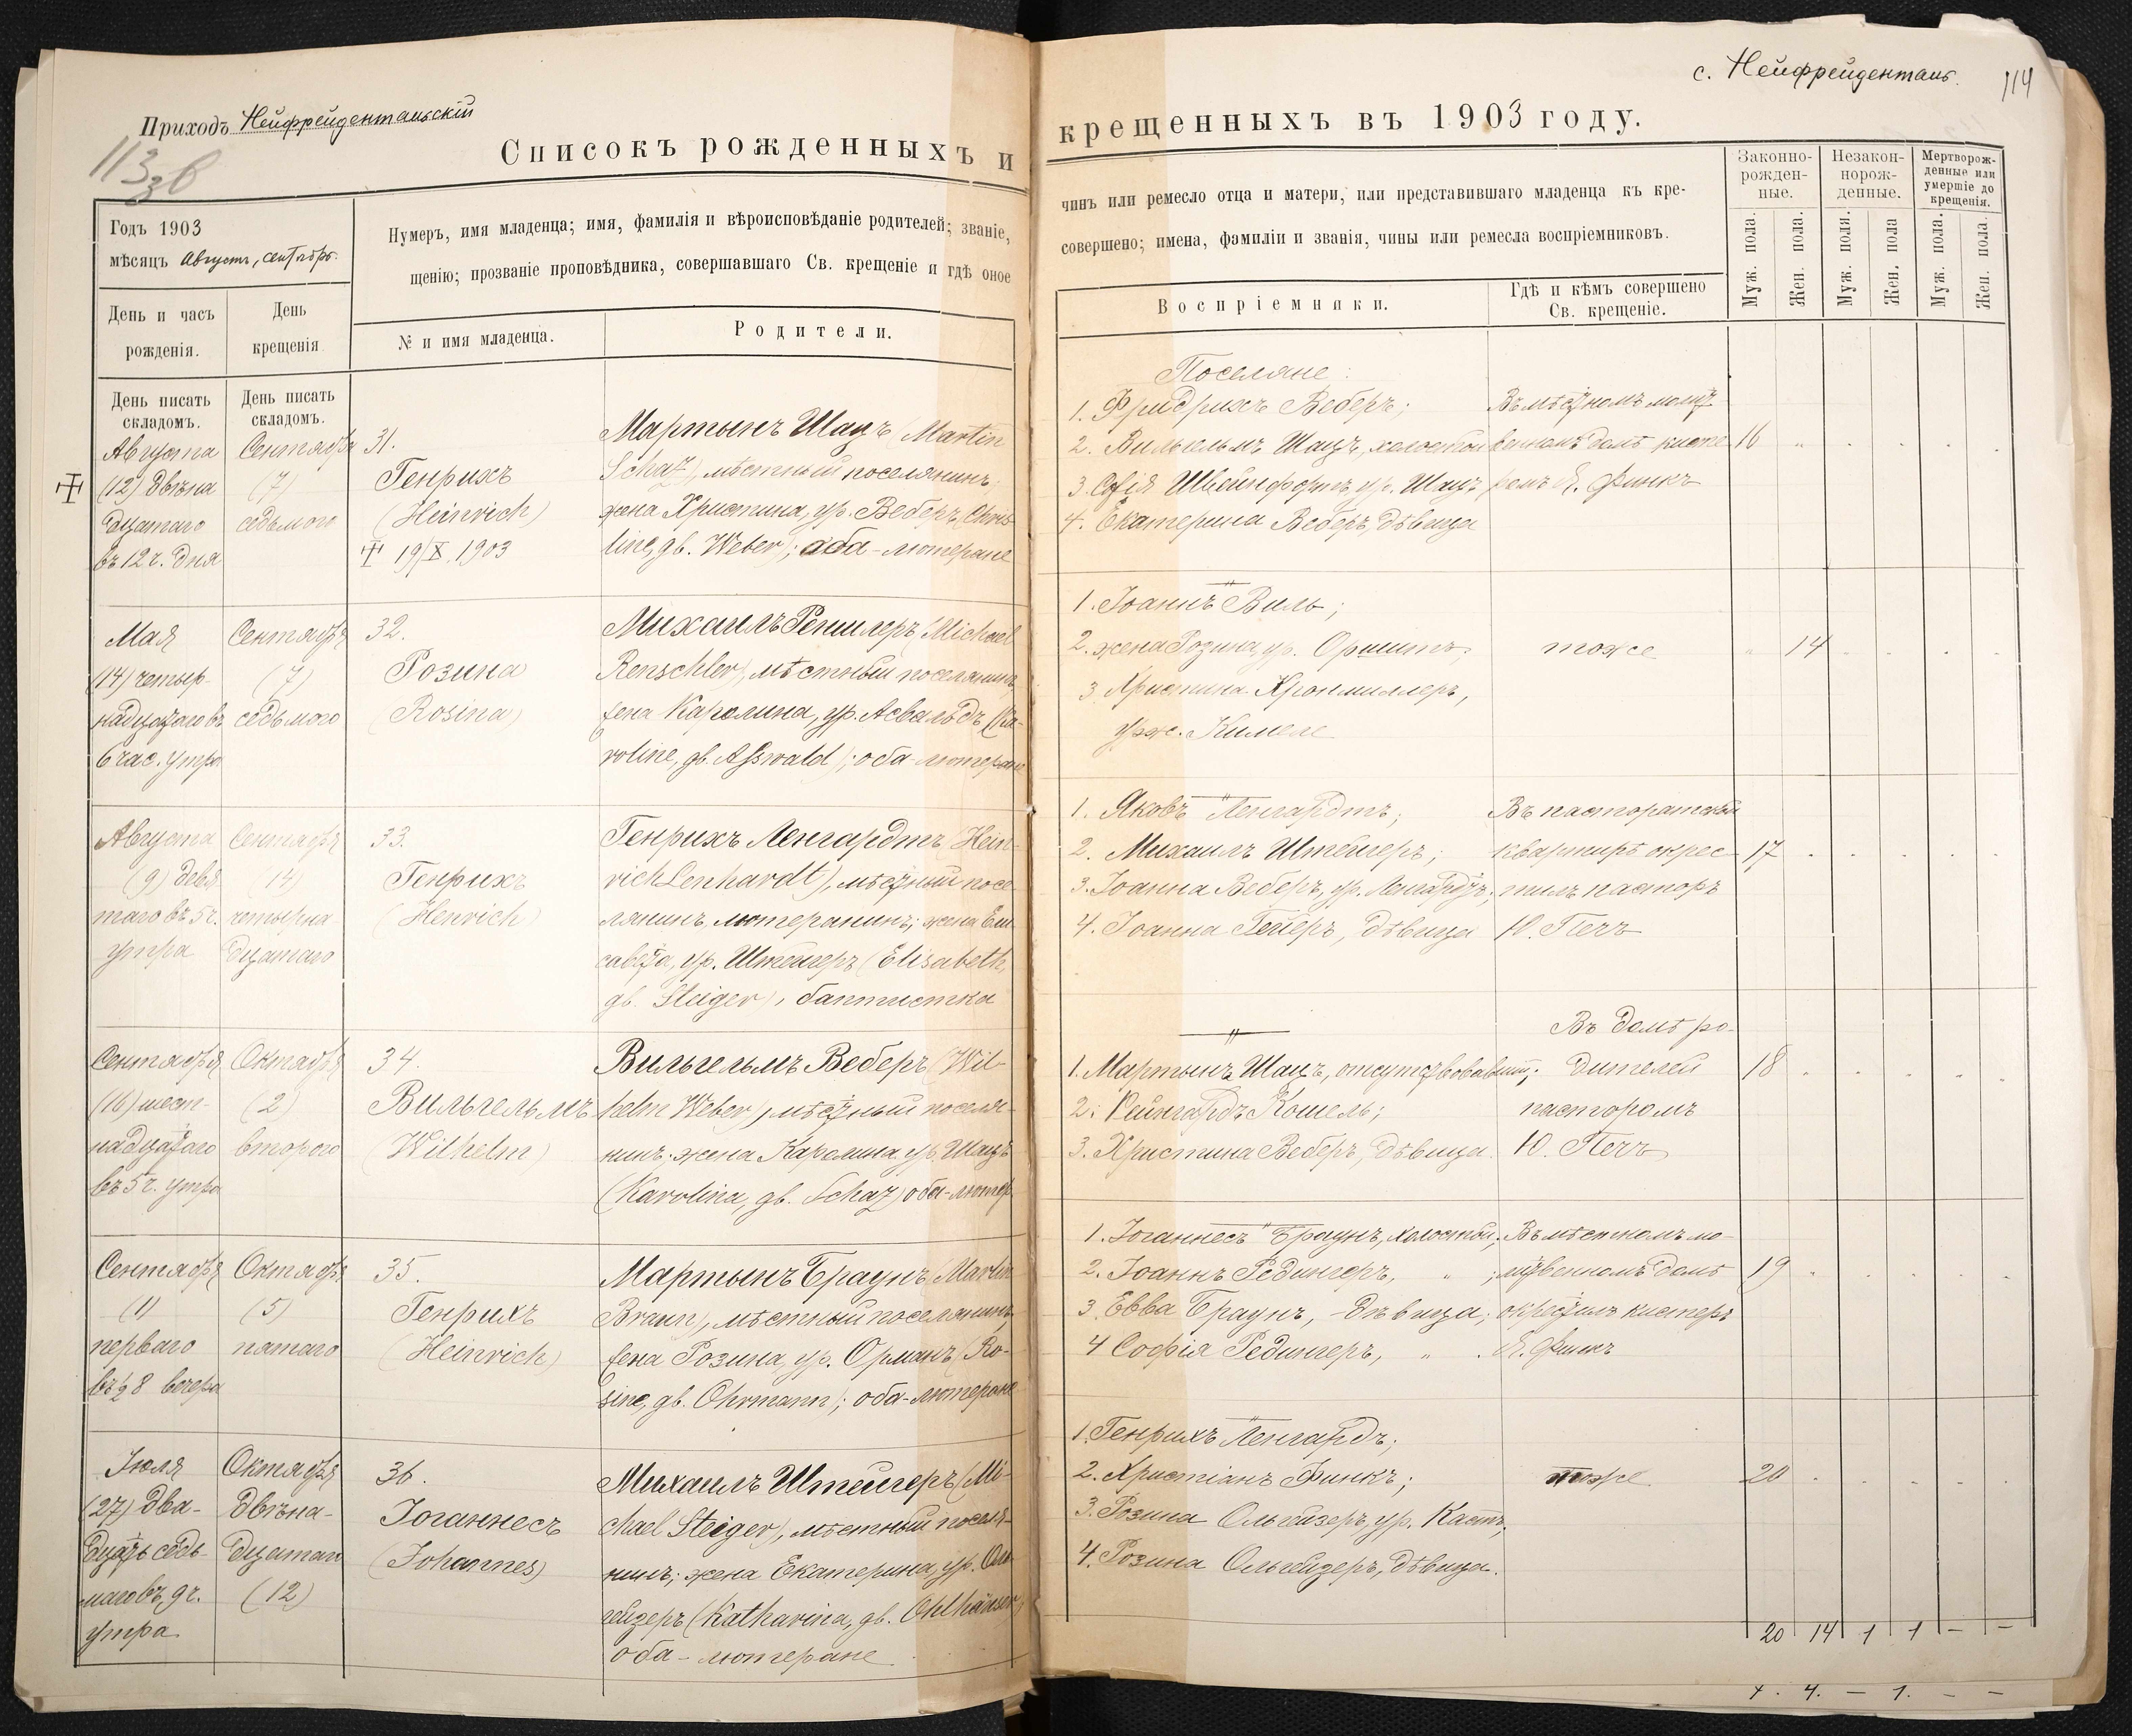 Приходъ Нейфрейдентальскій
113 зв
Списокъ рожденныхъ и
Годъ 1903
мѣсяцъ Августъ, сентябрь.
День и часъ
рожденія.
День
крещенія
Нумеръ, имя младенца; имя, фамилія и вѣроисповѣданіе родителей; званіе,
щенію; прозваніе проповѣдника, совершавшаго Св. крещеніе и гдѣ оное
№ и имя младенца.
Родители.
День писать
складомъ.
День писать
складомъ.
Августа
(12) двѣна
дцатаго
въ 12 ч. дня
Сентября
(7)
седьмого
31.
Генрихъ
(Heinrich)
19/X. 1903
Мартынъ Шацъ (Martin
Schaz), мѣстный поселянинъ,
жена Христина, ур. Веберъ (Chris
tine, gb. Weber); оба-лютеране
Мая
(14) четыр-
надцатаго въ
6 час. утра
Сентября
(7)
седьмого
32.
Розина
(Rosina)
Михаилъ Реншлеръ (Michael
Renschler), мѣстный поселянинъ,
жена Каролина, ур. Асвальдъ (Ka-
roline, gb. Asswald); оба-лютеране
Августа
(9) девя
таго въ 5 ч.
утра
Сентября
(14)
четырна
дцатаго
33.
Генрихъ
(Henrich)
Генрихъ Ленгардтъ (Hein
rich Lenhardt), мѣстный посе
лянинъ, лютеранинъ; жена Ели
савета, ур. Штейгеръ (Elisabeth,
gb. Steiger), баптистка
Сентября
(16) шест-
надцатаго
въ 5 ч. утра
Октября
(2)
второго
34.
Вильгельмъ
(Wilhelm)
Вильгельмъ Веберъ (Wil-
helm Weber), мѣстный поселя-
нинъ. жена Каролина ур. Шацъ
(Karolina, gb. Schaz) оба-лютер.
Сентября
(1)
перваго
въ ½8 вечера
Октября
(5)
пятаго
35.
Генрихъ
(Heinrich)
Мартынъ Браунъ (Martin
Braun), мѣстный поселянинъ,
жена Розина, ур. Орманъ (Ro-
sine, gb. Ohrmann); оба-лютеране
Іюля
(27) два-
дцать седь-
маго въ 9 ч.
утра
Октября
двѣна-
дцатаго
(12)
36.
Іоганнесъ
(Johannes)
Михаилъ Штейгеръ (Mi-
chael Steiger), мѣстный поселя-
нинъ; жена Екатерина, ур. Оль
гейзеръ (Katharina, gb. Ohlhäuser)
оба-лютеране
с. Нейфрейденталь.
114
крещенныхъ въ 1903 году.
чинъ или ремесло отца и матери, или представившаго младенца къ кре-
совершено; имена, фамиліи и званія, чины или ремесла воспріемниковъ.
Воспріемники.
Гдѣ и кѣмъ совершено
Св. крещеніе.
Законно-
рожден-
ные.
Незакон-
норож-
денные.
Мертворож-
денные или
умершіе до
крещенія.
Муж. пола.
Жен. пола.
Муж. пола.
Жен. пола
Муж. пола.
Жен. пола.
Поселяне:
1. Фридрихъ Веберъ;
2. Вильгельмъ Шацъ, холостой
3. Софія Швейнфортъ, ур. Шацъ
4. Екатерина Веберъ, дѣвица
Въ мѣстномъ молит
венномъ домѣ кисте
ромъ Я. Финкъ
16
1. Іоаннъ Виль;
2. жена Розина, ур. Оршитъ;
3. Христина Кронмиллеръ,
урж. Кимеле
тоже
14
1. Яковъ Ленгардтъ;
2. Михаилъ Штейгеръ;
3. Іоанна Веберъ, ур. Ленгардтъ;
4. Іоанна Гейеръ, дѣвица
Въ пасторатской
квартирѣ окрес-
тилъ пасторъ
Ю. Печъ
17
1. Мартынъ Шацъ, отсутствовавшій;
2. Рейнгардъ Кошель;
3. Христина Веберъ, дѣвица.
Въ домѣ ро-
дителей
пасторомъ
Ю. Печъ
18
1. Іоганнесъ Браунъ, холостой;
2. Іоаннъ Редингеръ, " ;
3. Евва Браунъ, дѣвица;
4 Софія Редингеръ, " .
Въ мѣстномъ мо-
литвенномъ домѣ
окрестилъ кистеръ
Я. Финкъ
19
1. Генрихъ Ленгардъ;
2. Христіанъ Финкъ;
3. Розина Ольгейзеръ, ур. Кастъ;
4. Розина Ольгейзеръ, дѣвица.
тоже
20
20 14 1 1 – –
4. – 1. – –